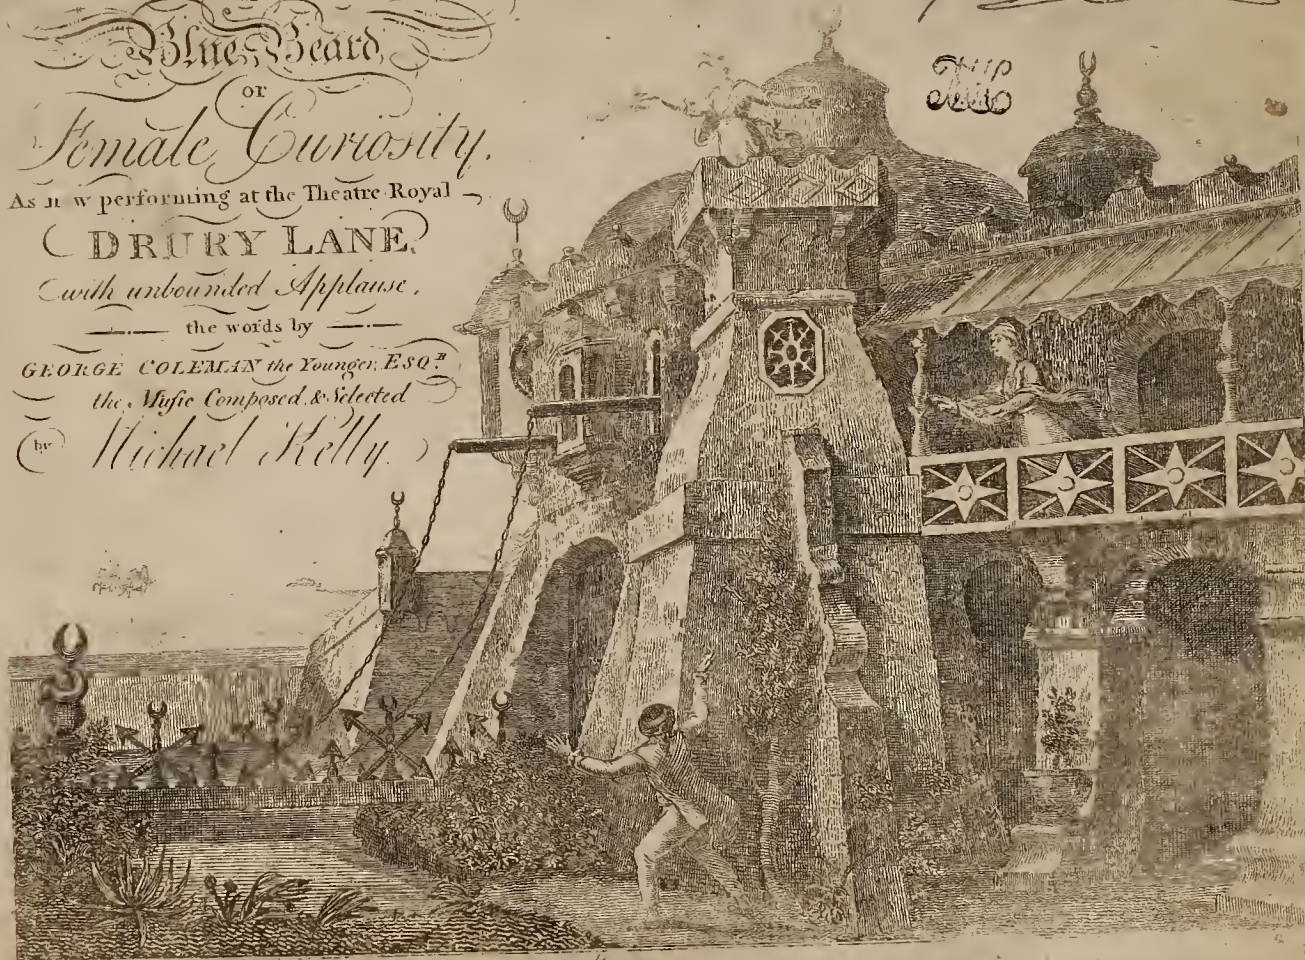 Blue Beard,
or
Female Curiosity.
As now performing at the Theatre Royal
DRURY LANE,
with unbounded Applause,
the words by
GEORGE COLEMAN the Younger, ESQ.R
the Music Composed, & Selected
by Michael Kelly.